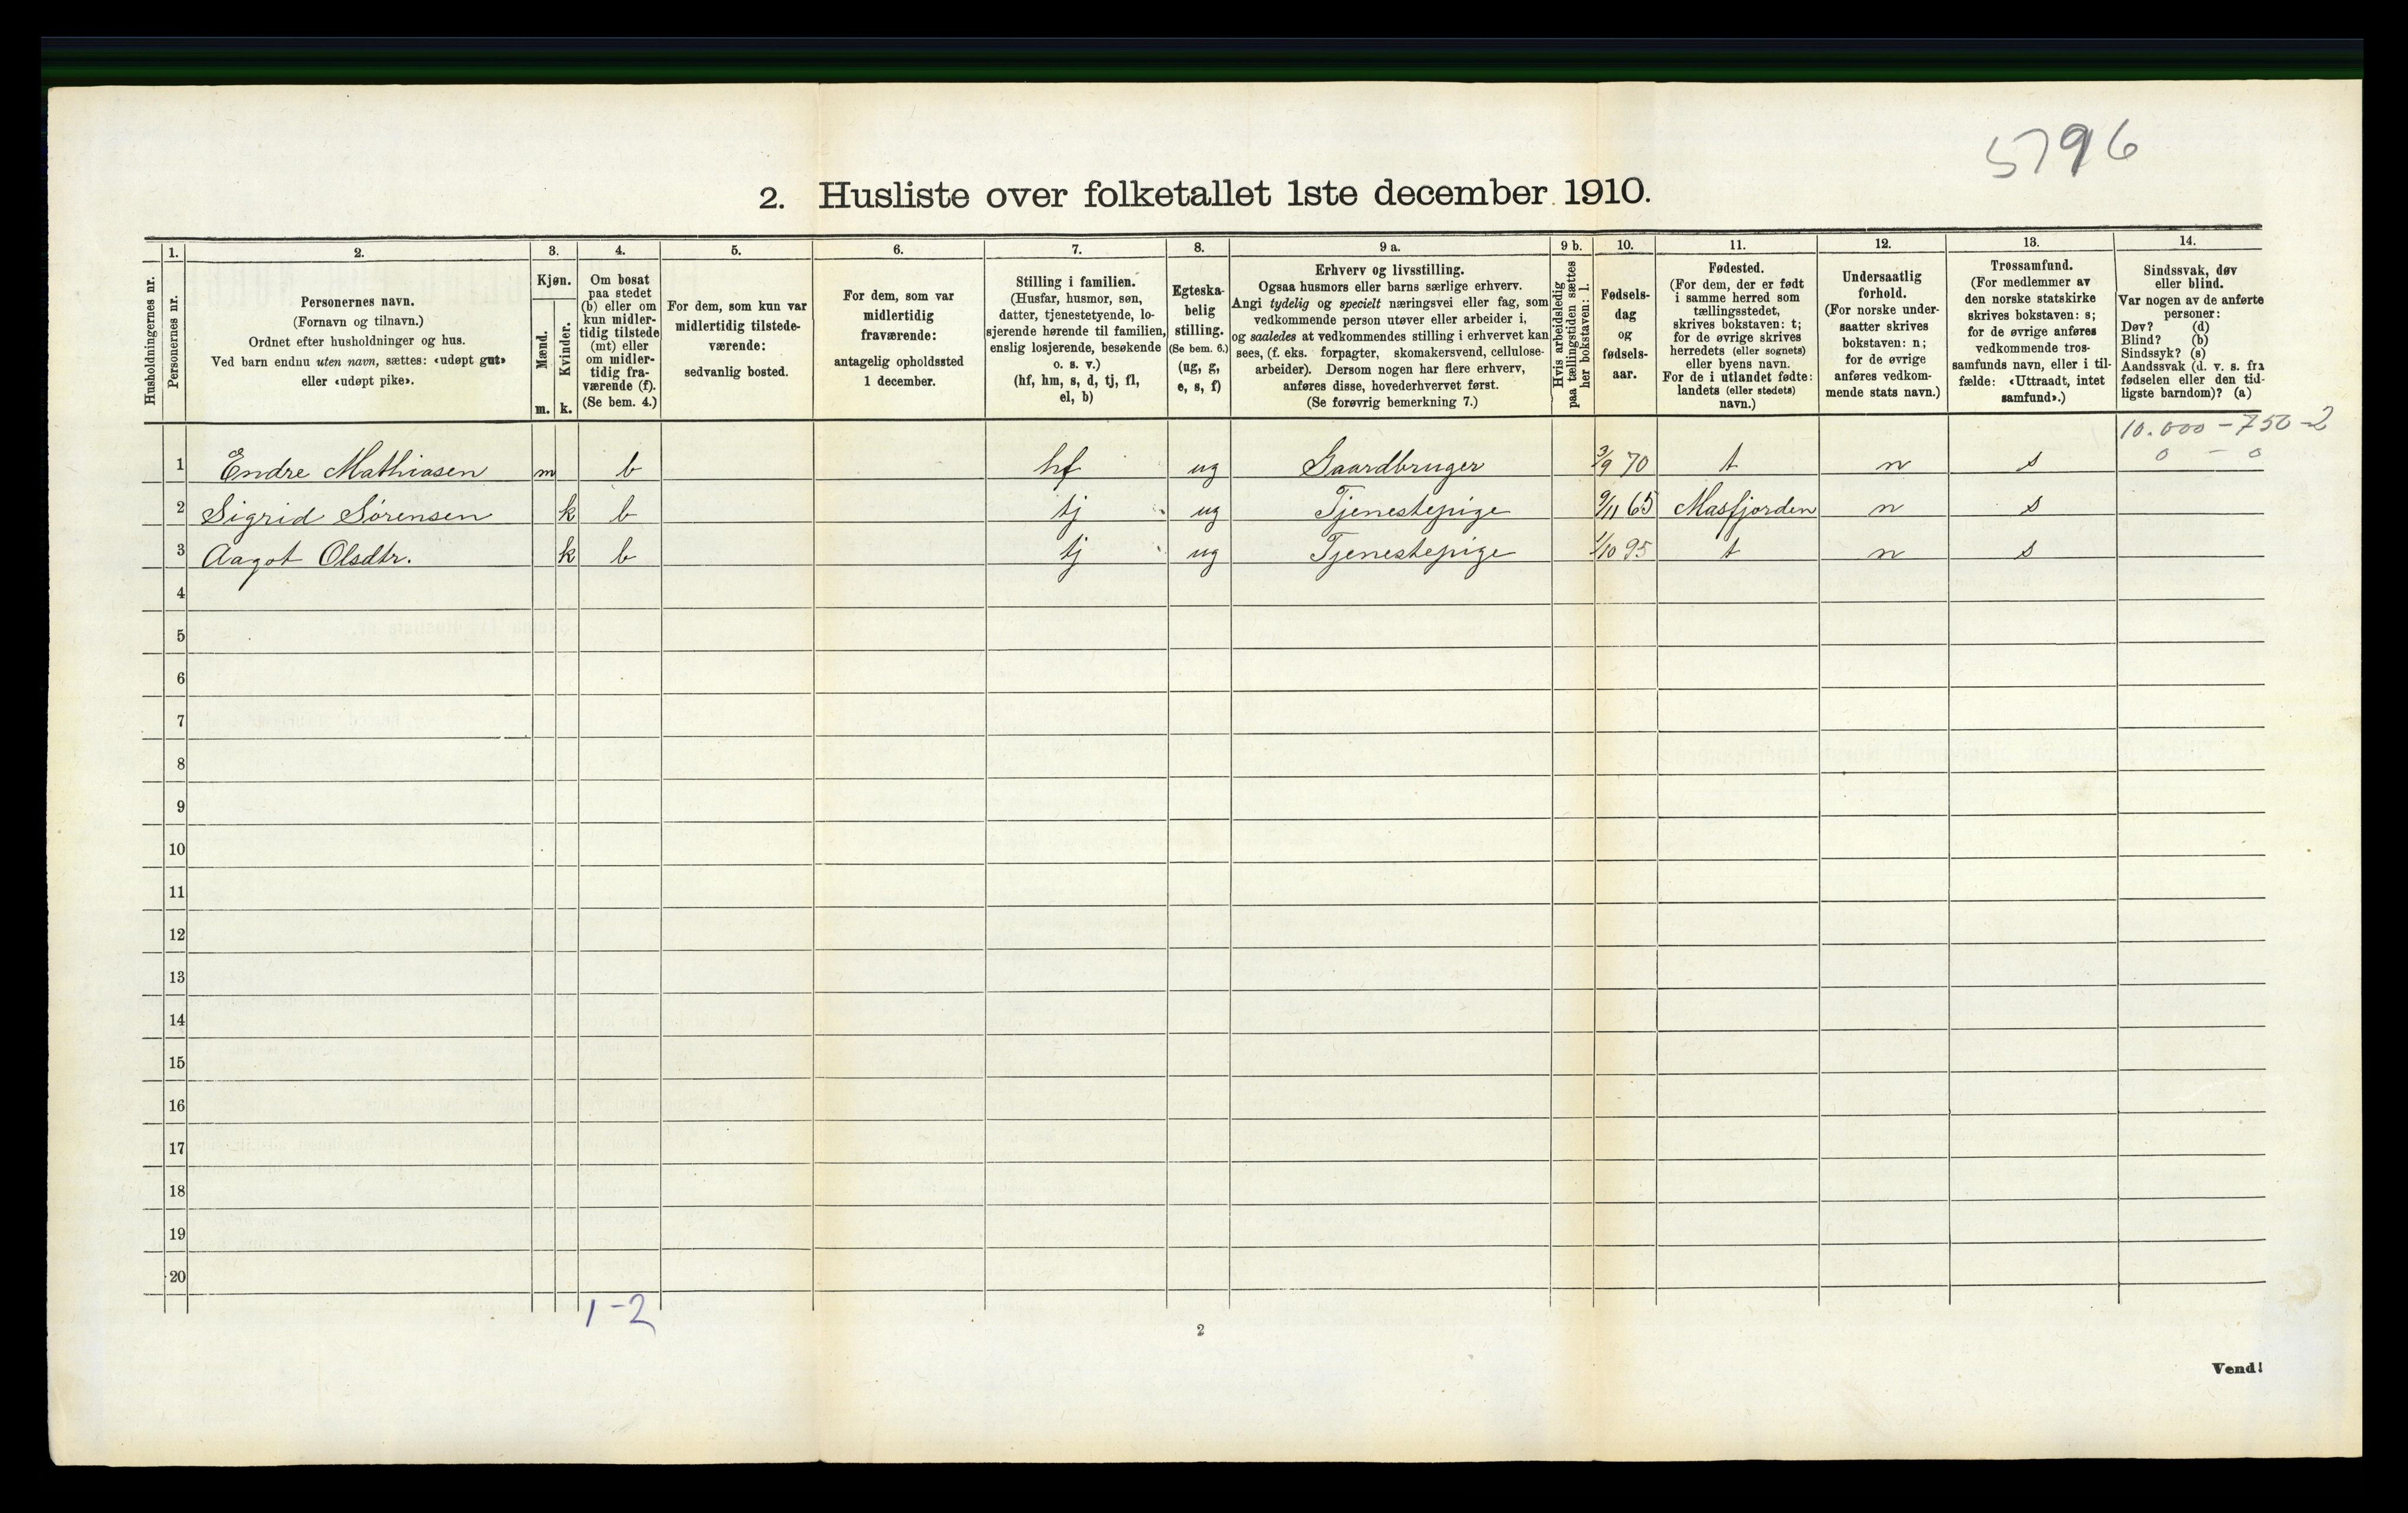 5796
2. Husliste over folketallet 1ste december 1910.
Husholdningernes nr.
1.
Personernes nr.
2.
Personernes navn.
(Fornavn og tilnavn.)
Ordnet efter husholdninger og hus.
Ved barn endnu uten navn, sættes: «udøpt gut»
eller «udøpt pike».
3.
Kjøn.
Mænd.
m.
Kvinder.
k.
4.
Om bosat
paa stedet
(b) eller om
kun midler-
tidig tilstede
(mt) eller
om midler-
tidig fra-
værende (f).
(Se bem. 4.)
5.
For dem, som kun var
midlertidig tilstede-
værende:
sedvanlig bosted.
6.
For dem, som var
midlertidig
fraværende:
antagelig opholdssted
1 december.
7.
Stilling i familien.
(Husfar, husmor, søn,
datter, tjenestetyende, lo-
sjerende hørende til familien,
enslig losjerende, besøkende
o. s. v.)
(hf, hm, s, d, tj, fl,
el, b)
8.
Egteska-
belig
stilling.
(Se bem. 6.)
(ug, g,
e, s, f)
9 a.
Erhverv og livsstilling.
Ogsaa husmors eller barns særlige erhverv.
Angi tydelig og specielt næringsvei eller fag, som
vedkommende person utøver eller arbeider i,
og saaledes at vedkommendes stilling i erhvervet kan
sees, (f. eks. forpagter, skomakersvend, cellulose-
arbeider). Dersom nogen har flere erhverv,
anføres disse, hovederhvervet først.
(Se forøvrig bemerkning 7.)
9 b.
Hvis arbeidsledig
paa tællingstiden sættes
her bokstaven: l.
10.
Fødsels-
dag
og
fødsels-
aar.
11.
Fødested.
(For dem, der er født
i samme herred som
tællingsstedet,
skrives bokstaven: t;
for de øvrige skrives
herredets (eller sognets)
eller byens navn.
For de i utlandet fødte:
landets (eller stedets)
navn.)
12.
Undersaatlig
forhold.
(For norske under-
saatter skrives
bokstaven: n;
for de øvrige
anføres vedkom-
mende stats navn.)
13.
Trossamfund.
(For medlemmer av
den norske statskirke
skrives bokstaven: s;
for de øvrige anføres
vedkommende tros-
samfunds navn, eller i til-
fælde: «Uttraadt, intet
samfund».)
14.
Sindssvak, døv
eller blind.
Var nogen av de anførte
personer:
Døv? (d)
Blind? (b)
Sindssyk? (s)
Aandssvak (d. v. s. fra
fødselen eller den tid-
ligste barndom)? (a)
10.000 - 750 - 2
0 - 0
1 Endre Mathiasen m b hf ug Gaardbruger 3/9 70 t n s
2 Sigrid Sørensen k b tj ug Tjenestepige 9/11 65 Masfjorden n s
3 Aagot Olsdtr. k b tj ug Tjenestepige 1/10 95 t n s
4
5
6
7
8
9
10
11
12
13
14
15
16
17
18
19
20
1-2
2
Vend!